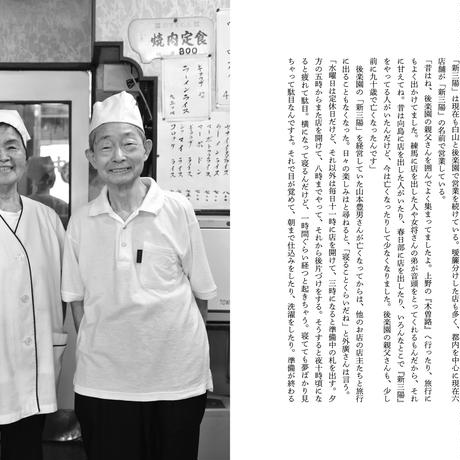 「新三陽」は現在も白山と後楽園で営業を続けている。暖簾分けした店も多く、都内を中心に現在六
店舗が「新三陽」の名前で営業している。
「昔はね、後楽園の親父さんを囲んでよく集まってましたよ。上野の『木曽路』へ行ったり、旅行に
もよく出かけてました。練馬に店を出した人や女将さんの弟が音頭をとってくれるもんだから、それ
に甘えてね。昔は向島に店を出した人がいたり、春日部に店を出したり、いろんなとこで『新三陽』
をやってる人がいたんだけど、今は亡くなったりして少なくなりました。後楽園の親父さんも、少し
前に九十歳で亡くなったんです」
後楽園の「新三陽」を経営していた山本豊男さんが亡くなってからは、他のお店の店主たちと旅行
に出ることもなくなった。日々の楽しみはと尋ねると、「寝ることくらいだね」と外廣さんは言う。
「水曜日は定休日だけど、それ以外は毎日十一時に店を開けて、三時になると準備中の札を出す。夕
方の五時からまた店を開けて、八時までやって、それから後片づけをする。そうすると夜十時頃にな
ると疲れて駄目。横になって寝るんだけど、一時間ぐらい経つと起きちゃう。寝てても夢ばかり見
ちゃって駄目なんですよ。それで目が覚めて、朝まで仕込みをしたり、洗濯をしたり。準備が終わる
焼肉定食
800
ラーメンライス